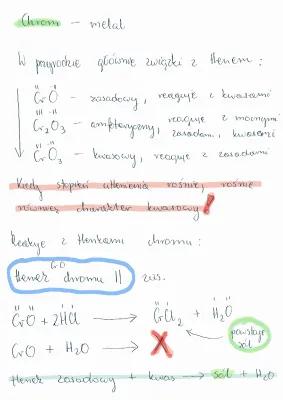 Chrom – metal
W przyrodzie głównie związki z tlenem:
II II
CrO – zasadowy, reaguje z kwasami
III II
Cr₂O₃ – amfoteryczny, reaguje z mocnymi
zasadam, kwasami
VI II
CrO₃ – kwasowy, reaguje z zasadami
Kiedy stopień utlenienia rośnie, rośnie
również charakter kwasowy!
Reakcje z tlenkami chromu:
CrO
tlenek chromu II zas.
CrO + 2HCl → CrCl₂ + H₂O
powstaje
sól
CrO + H₂O → X
tlenek zasadowy + kwas → sól + H₂O